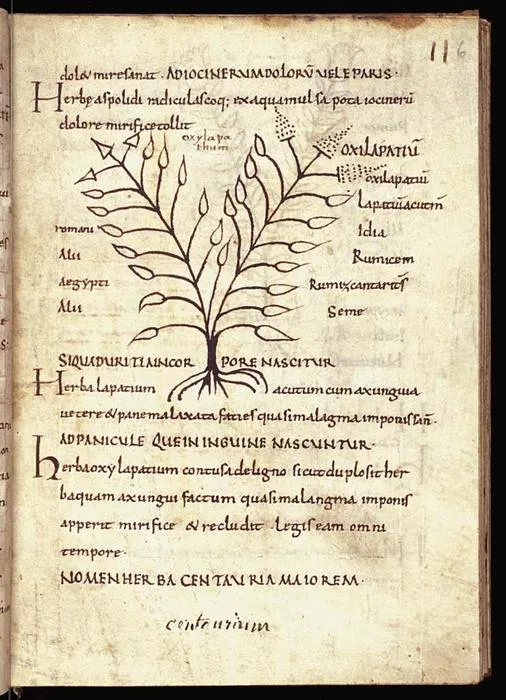 116
dolore mire sanat. AD IOCINERUM DOLORŪ VEL EPARIS.
Herbe aspolidi radiculas coq; exaqua mulsa pota iocinerū
dolore mirifice tollit
oxylapa
thum
OXILAPATIŪ
oxilapatiū
Lapatiū acutm̄
romanu
Idia
Alii
Rumicem
Aegypti
Rumix cantaritS
Alii
Seme
SI QUA DURITIA IN COR PORE NASCITUR
Herba Lapatium acutum cum axungia
vetere & pane malaxata facies quasi malagma imponis san̄.
AD PANICULE QUE IN INGUINE NASCUNTUR.
herba oxylapatium contusa de ligno sicut du plosit her
ba quam axungui factum quasi malangma imponis
apperit mirifice & recludit. Legis eam omni
tempore.
NOMEN HERBA CENTAURIA MAIOREM.
centaurium